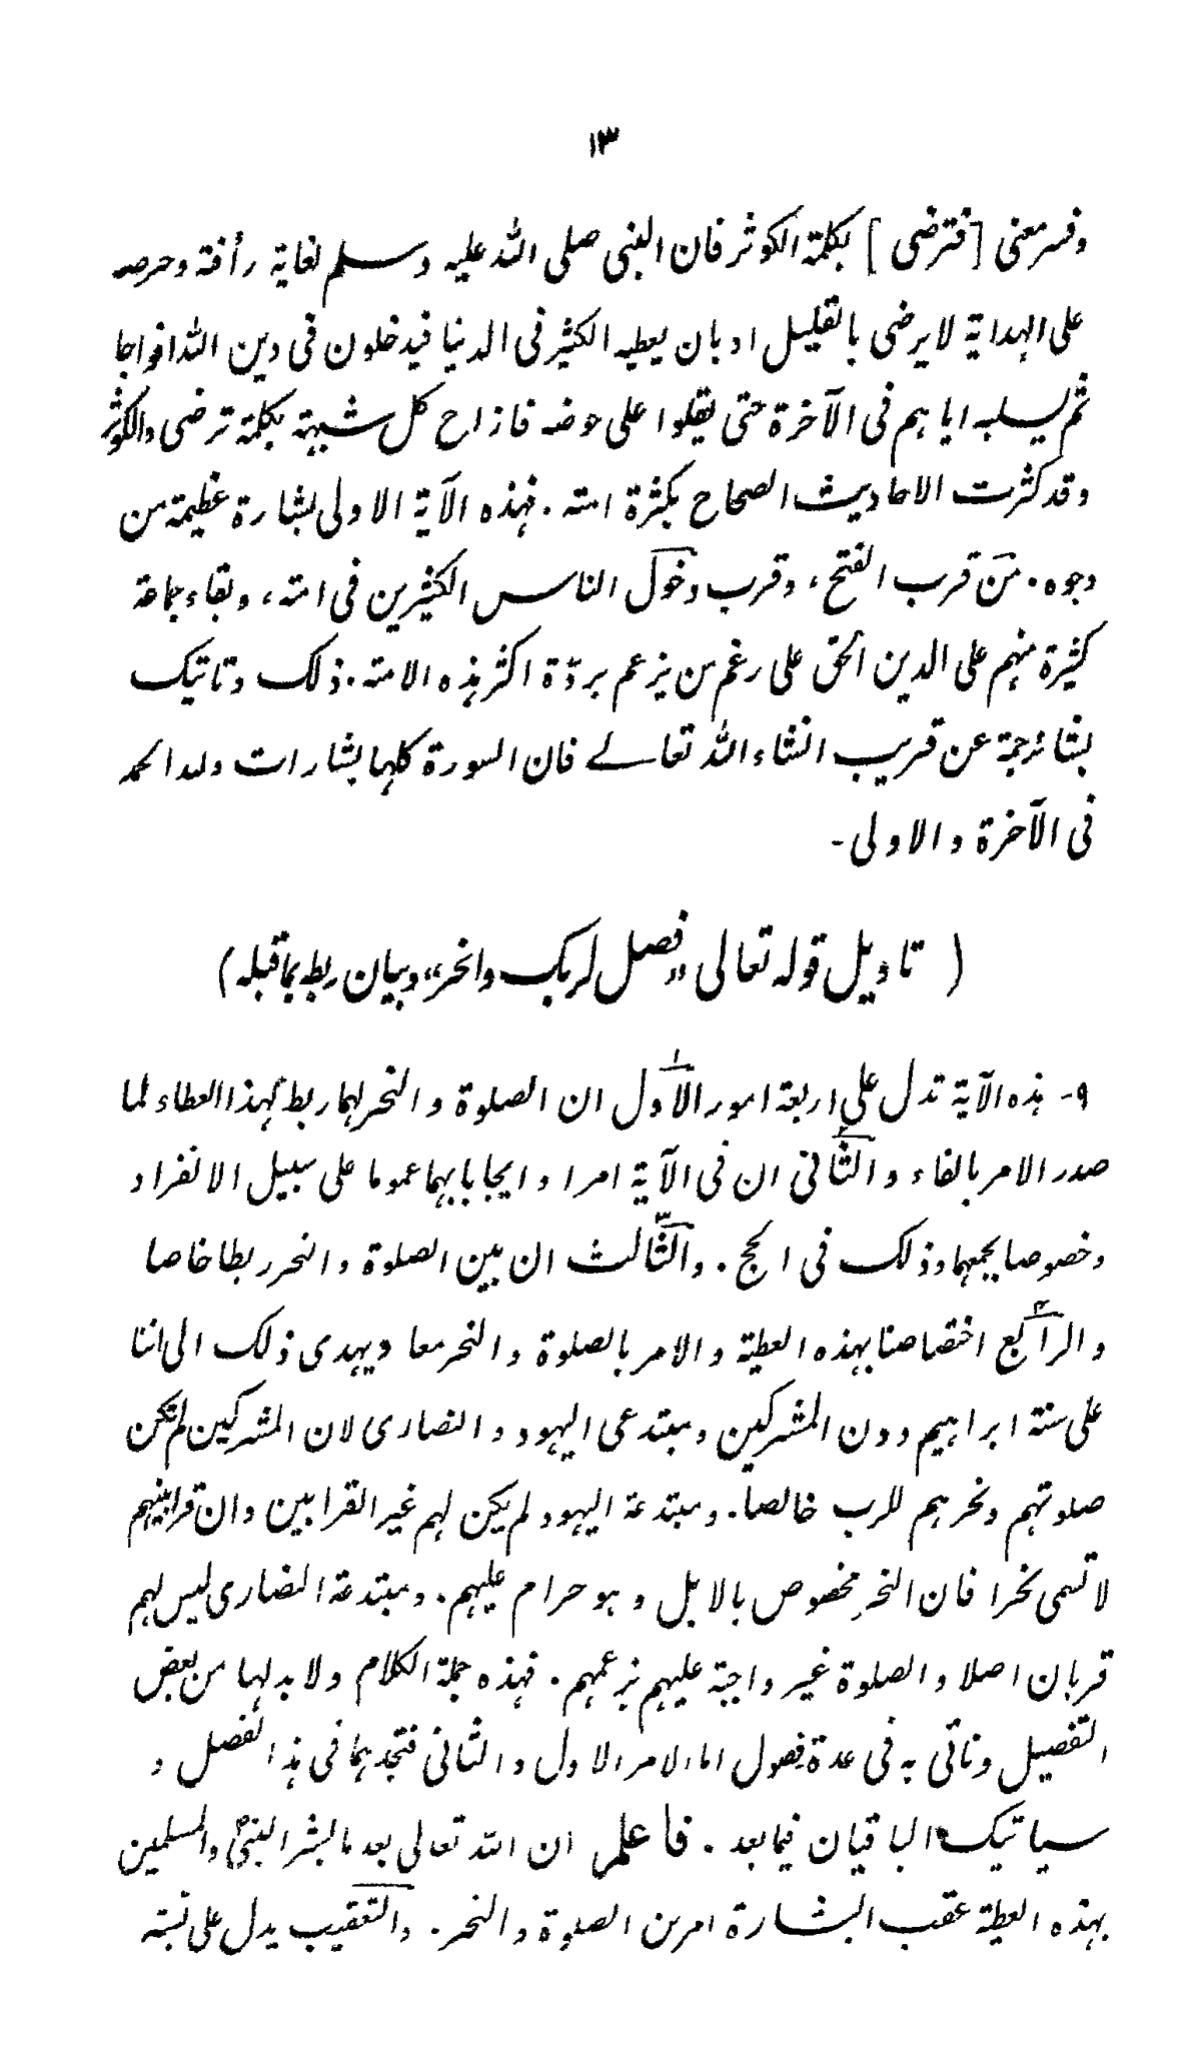 ١٣
وفسر معنى [فترضى] بكلمة الكوثر فان النبى صلى الله عليه وسلم لغاية رأفته وحرصه
على الهداية لا يرضى بالقليل او بان يعطيه الكثير فى الدنيا فيدخلون فى دين الله افواجا
ثم يسلبه اياهم فى الآخرة حتى يقلوا على حوضه فازاح كل شبهة بكلمة ترضى والكوثر
وقد كثرت الاحاديث الصحاح بكثرة امته . فهذه الآية الاولى بشارة عظيمة من
وجوه . من قرب الفتح ، وقرب دخول الناس الكثيرين فى امته ، وبقاء جماعة
كثيرة منهم على الدين الحق على رغم من يزعم بردّة اكثر هذه الامة . ذلك وتاتيك
بشائر جمة عن قريب انشاء الله تعالى فان السورة كلها بشارات ولله الحمد
فى الآخرة والاولى -
( تاويل قوله تعالى „فصل لربك وانحر“ وبيان ربطه بما قبله )
٩- هذه الآية تدل على اربعة امور الاول ١ ان الصلوة والنحر لهما ربط بهذا العطاء لما
صدر الامر بالفاء والثانى ٢ ان فى الآية امرا وايجابا بهما عموما على سبيل الانفراد
وخصوصا بجمعهما وذلك فى الحج . والثالث ٣ ان بين الصلوة والنحر ربطا خاصا
والرابع ٤ اختصاصنا بهذه العطية والامر بالصلوة والنحر معا ويهدى ذلك الى اننا
على سنة ابراهيم دون المشركين ومبتدعى اليهود والنصارى لان المشركين لم تكن
صلوتهم ونحرهم للرب خالصا . ومبتدعة اليهود لم يكن لهم غير القرابين وان قرابينهم
لا تسمى نحرا فان النحر مخصوص بالابل وهو حرام عليهم . ومبتدعة النصارى ليس لهم
قربان اصلا والصلوة غير واجبة عليهم بزعمهم . فهذه جملة الكلام ولا بد لها من بعض
التفصيل وناتى به فى عدة فصول اما الامر الاول والثانى فتجدهما فى هذا الفصل و
سياتيك الباقيان فيما بعد . فاعلم ان الله تعالى بعد ما بشر النبىؐ والمسلمين
بهذه العطية عقب البشارة امر من الصلوة والنحر . والتعقيب يدل على نسبته